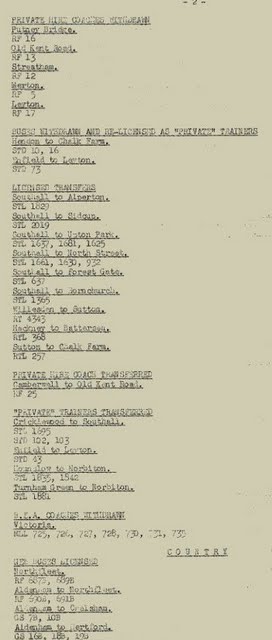 - 2 -
PRIVATE HIRE COACHES WITHDRAWN
Putney Bridge.
RF 16
Old Kent Road.
RF 13
Streatham.
RF 12
Merton.
RF 5
Leyton.
RF 17
BUSES WITHDRAWN AND RE-LICENSED AS "PRIVATE" TRAINERS
Hendon to Chalk Farm.
STD 10, 16
Enfield to Leyton.
STD 73
LICENSED TRANSFERS
Southall to Alperton.
STL 1829
Southall to Sidcup.
STL 2019
Southall to Upton Park.
STL 1637, 1681, 1625
Southall to North Street.
STL 1661, 1630, 932
Southall to Forest Gate.
STL 637
Southall to Hornchurch.
STL 1365
Willesden to Sutton.
RT 4343
Hackney to Battersea.
RTL 368
Sutton to Chalk Farm.
RTL 257
PRIVATE HIRE COACH TRANSFERRED
Camberwell to Old Kent Road.
RF 25
"PRIVATE" TRAINERS TRANSFERRED
Cricklewood to Southall.
STL 1695
STD 102, 103
Enfield to Leyton.
STD 43
Hounslow to Norbiton.
STL 1835, 1542
Turnham Green to Norbiton.
STL 1881
B.E.A. COACHES WITHDRAWN
Victoria.
725, 726, 727, 728, 730, 731, 735
COUNTRY
NEW BUSES LICENSED
Northfleet.
RF
Aldenham to Northfleet.
RF
Aldenham to
GS 7B, 10B
Aldenham to Hertford.
GS 16B, 18B, 19B